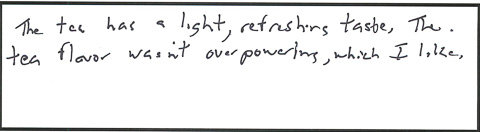 The tea has a light, refreshing taste, The.
tea flavor wasn't overpowering, which I like,